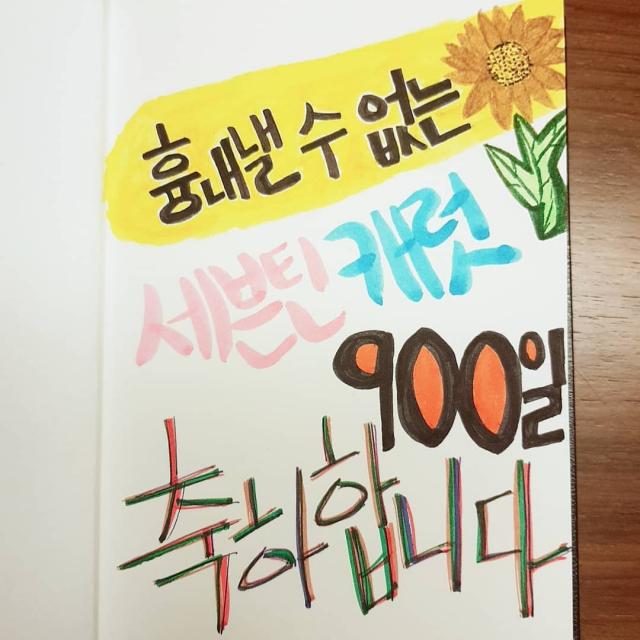 흉내낼 수 없는
세븐틴 캐럿
900일
축하합니다